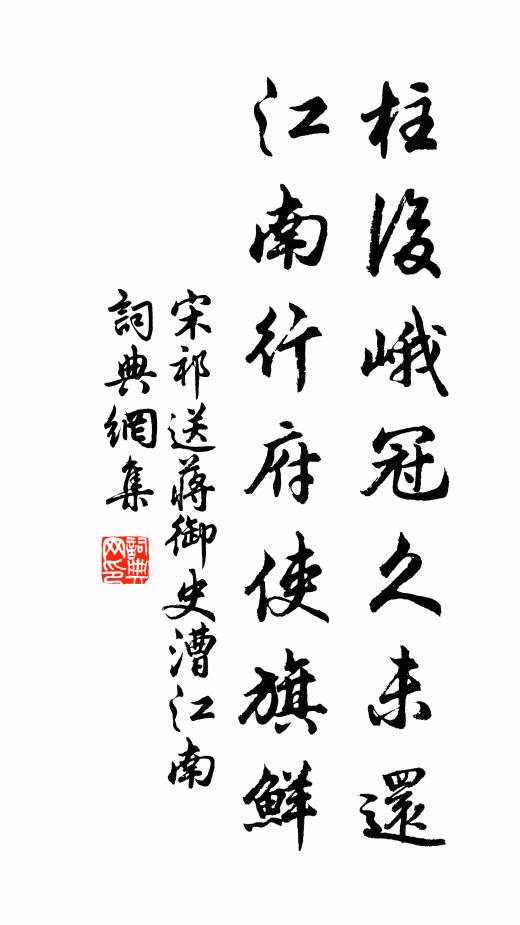 柱後峨冠久未還
江南行府使旗鮮
宋祁送蔣御史漕江南
詞典網集
詞典网印